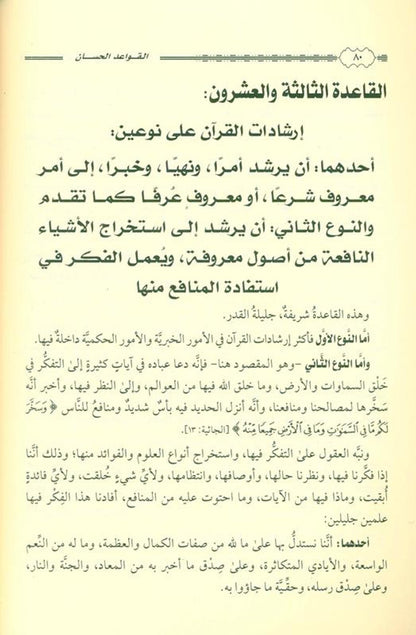 ٨٠
القواعد الحسان
القاعدة الثالثة والعشرون:
إرشادات القرآن على نوعين:
أحدهما: أن يرشد أمرًا، ونهيًا، وخبرًا، إلى أمر
معروف شرعًا، أو معروف عُرفًا كما تقدم
والنوع الثاني: أن يرشد إلى استخراج الأشياء
النافعة من أصول معروفة، ويُعمل الفكر في
استفادة المنافع منها
وهذه القاعدةُ شريفةٌ، جليلةُ القدر.
أمَّا النَّوع الأوَّل فأكثر إرشادات القرآن في الأمور الخبريَّة والأمور الحكميَّة داخلةٌ فيها.
وأمَّا النَّوع الثَّاني -وهو المقصود هنا- فإنَّه دعا عباده في آياتٍ كثيرةٍ إلى التفكُّر في
خَلْق السماوات والأرض، وما خلق الله فيها من العوالم، وإلى النظر فيها، وأخبر أنَّه
سَخَّرها لمصالحنا ومنافعنا، وأنَّه أنزل الحديد فيه بأسٌ شديدٌ ومنافعُ للنَّاس ﴿وَسَخَّرَ
لَكُم مَّا فِي السَّمَٰوَٰتِ وَمَا فِي الْأَرْضِ جَمِيعًا مِّنْهُ﴾ [الجاثية: ١٣].
ونبَّه العقول علىٰ التفكُّر فيها، واستخراج أنواع العلوم والفوائد منها؛ وذلك أنَّنا
إذا فكَّرنا فيها، ونظرنا حالها، وأوصافها، وانتظامها، ولأيِّ شيءٍ خُلقت، ولأيِّ فائدةٍ
أُبقيت، وماذا فيها من الآيات، وما احتوت عليه من المنافع، أفادنا هذا الفِكْر فيها
علمين جليلين:
أحدهما: أنَّنا نستدلُّ بها علىٰ ما لله من صفات الكمال والعظمة، وما له من النِّعم
الواسعة، والأيادي المتكاثرة، وعلى صِدْق ما أخبر به من المعاد، والجنَّة والنار،
وعلىٰ صِدْق رسله، وحقِّيَّة ما جاؤوا به.